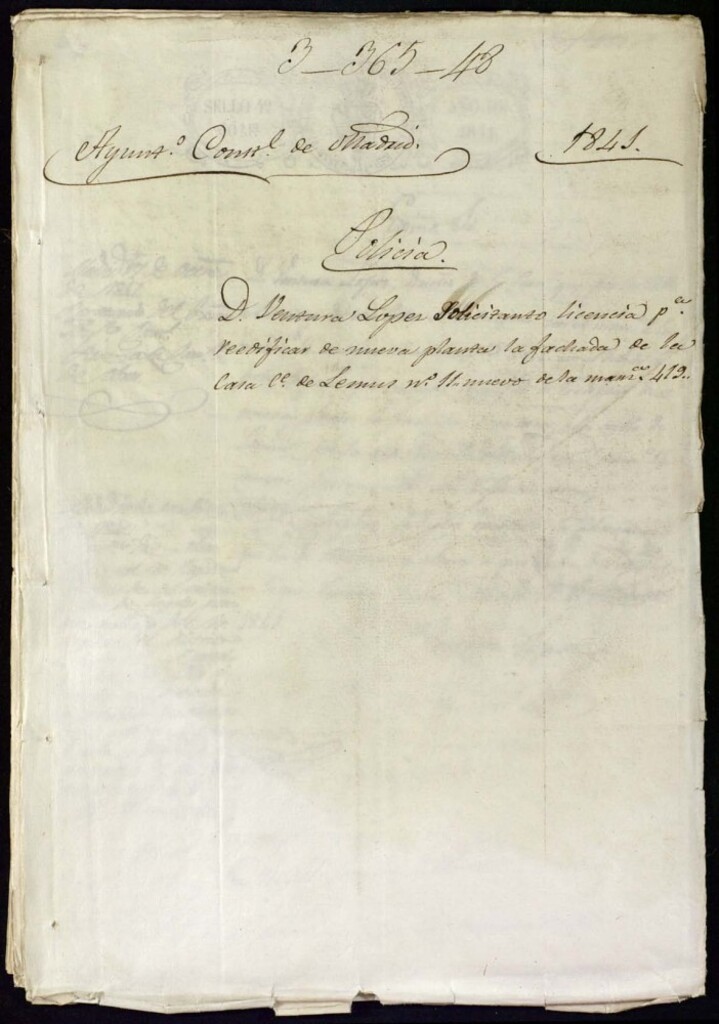 3-365-48
Ayunt.º Const.l de Madrid. 1841.
Policia.
D. Ventura Lopez Solicitando licencia p.ª
reedificar de nueva planta la fachada de la
Casa C.e de Lemus n.º 11 nuevo de la manz.na 419.